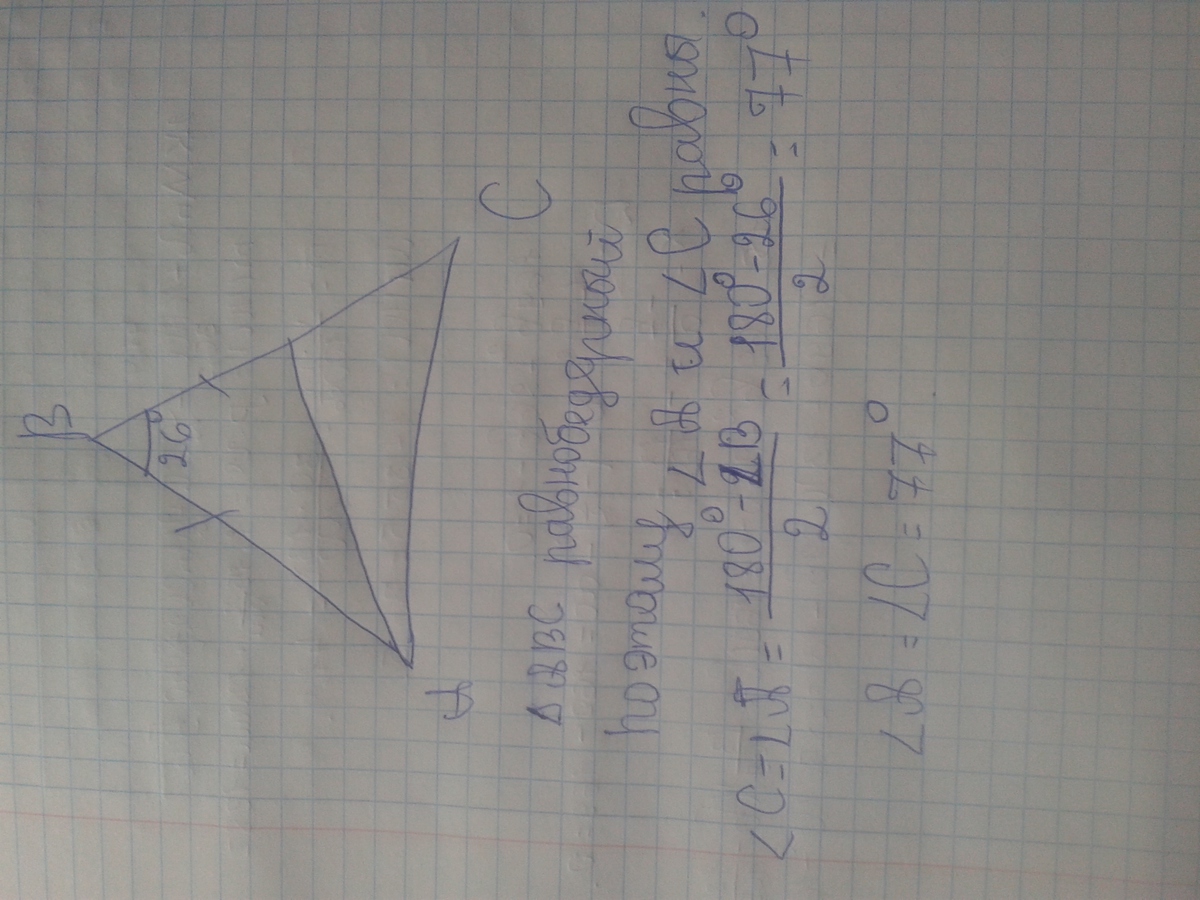 B
26°
A
C
Δ ABC равнобедернный
поэтаму ∠A и ∠C равны.
∠C = ∠A = (180° - ∠B)/2 = (180° - 26°)/2 = 77°
∠A = ∠C = 77°